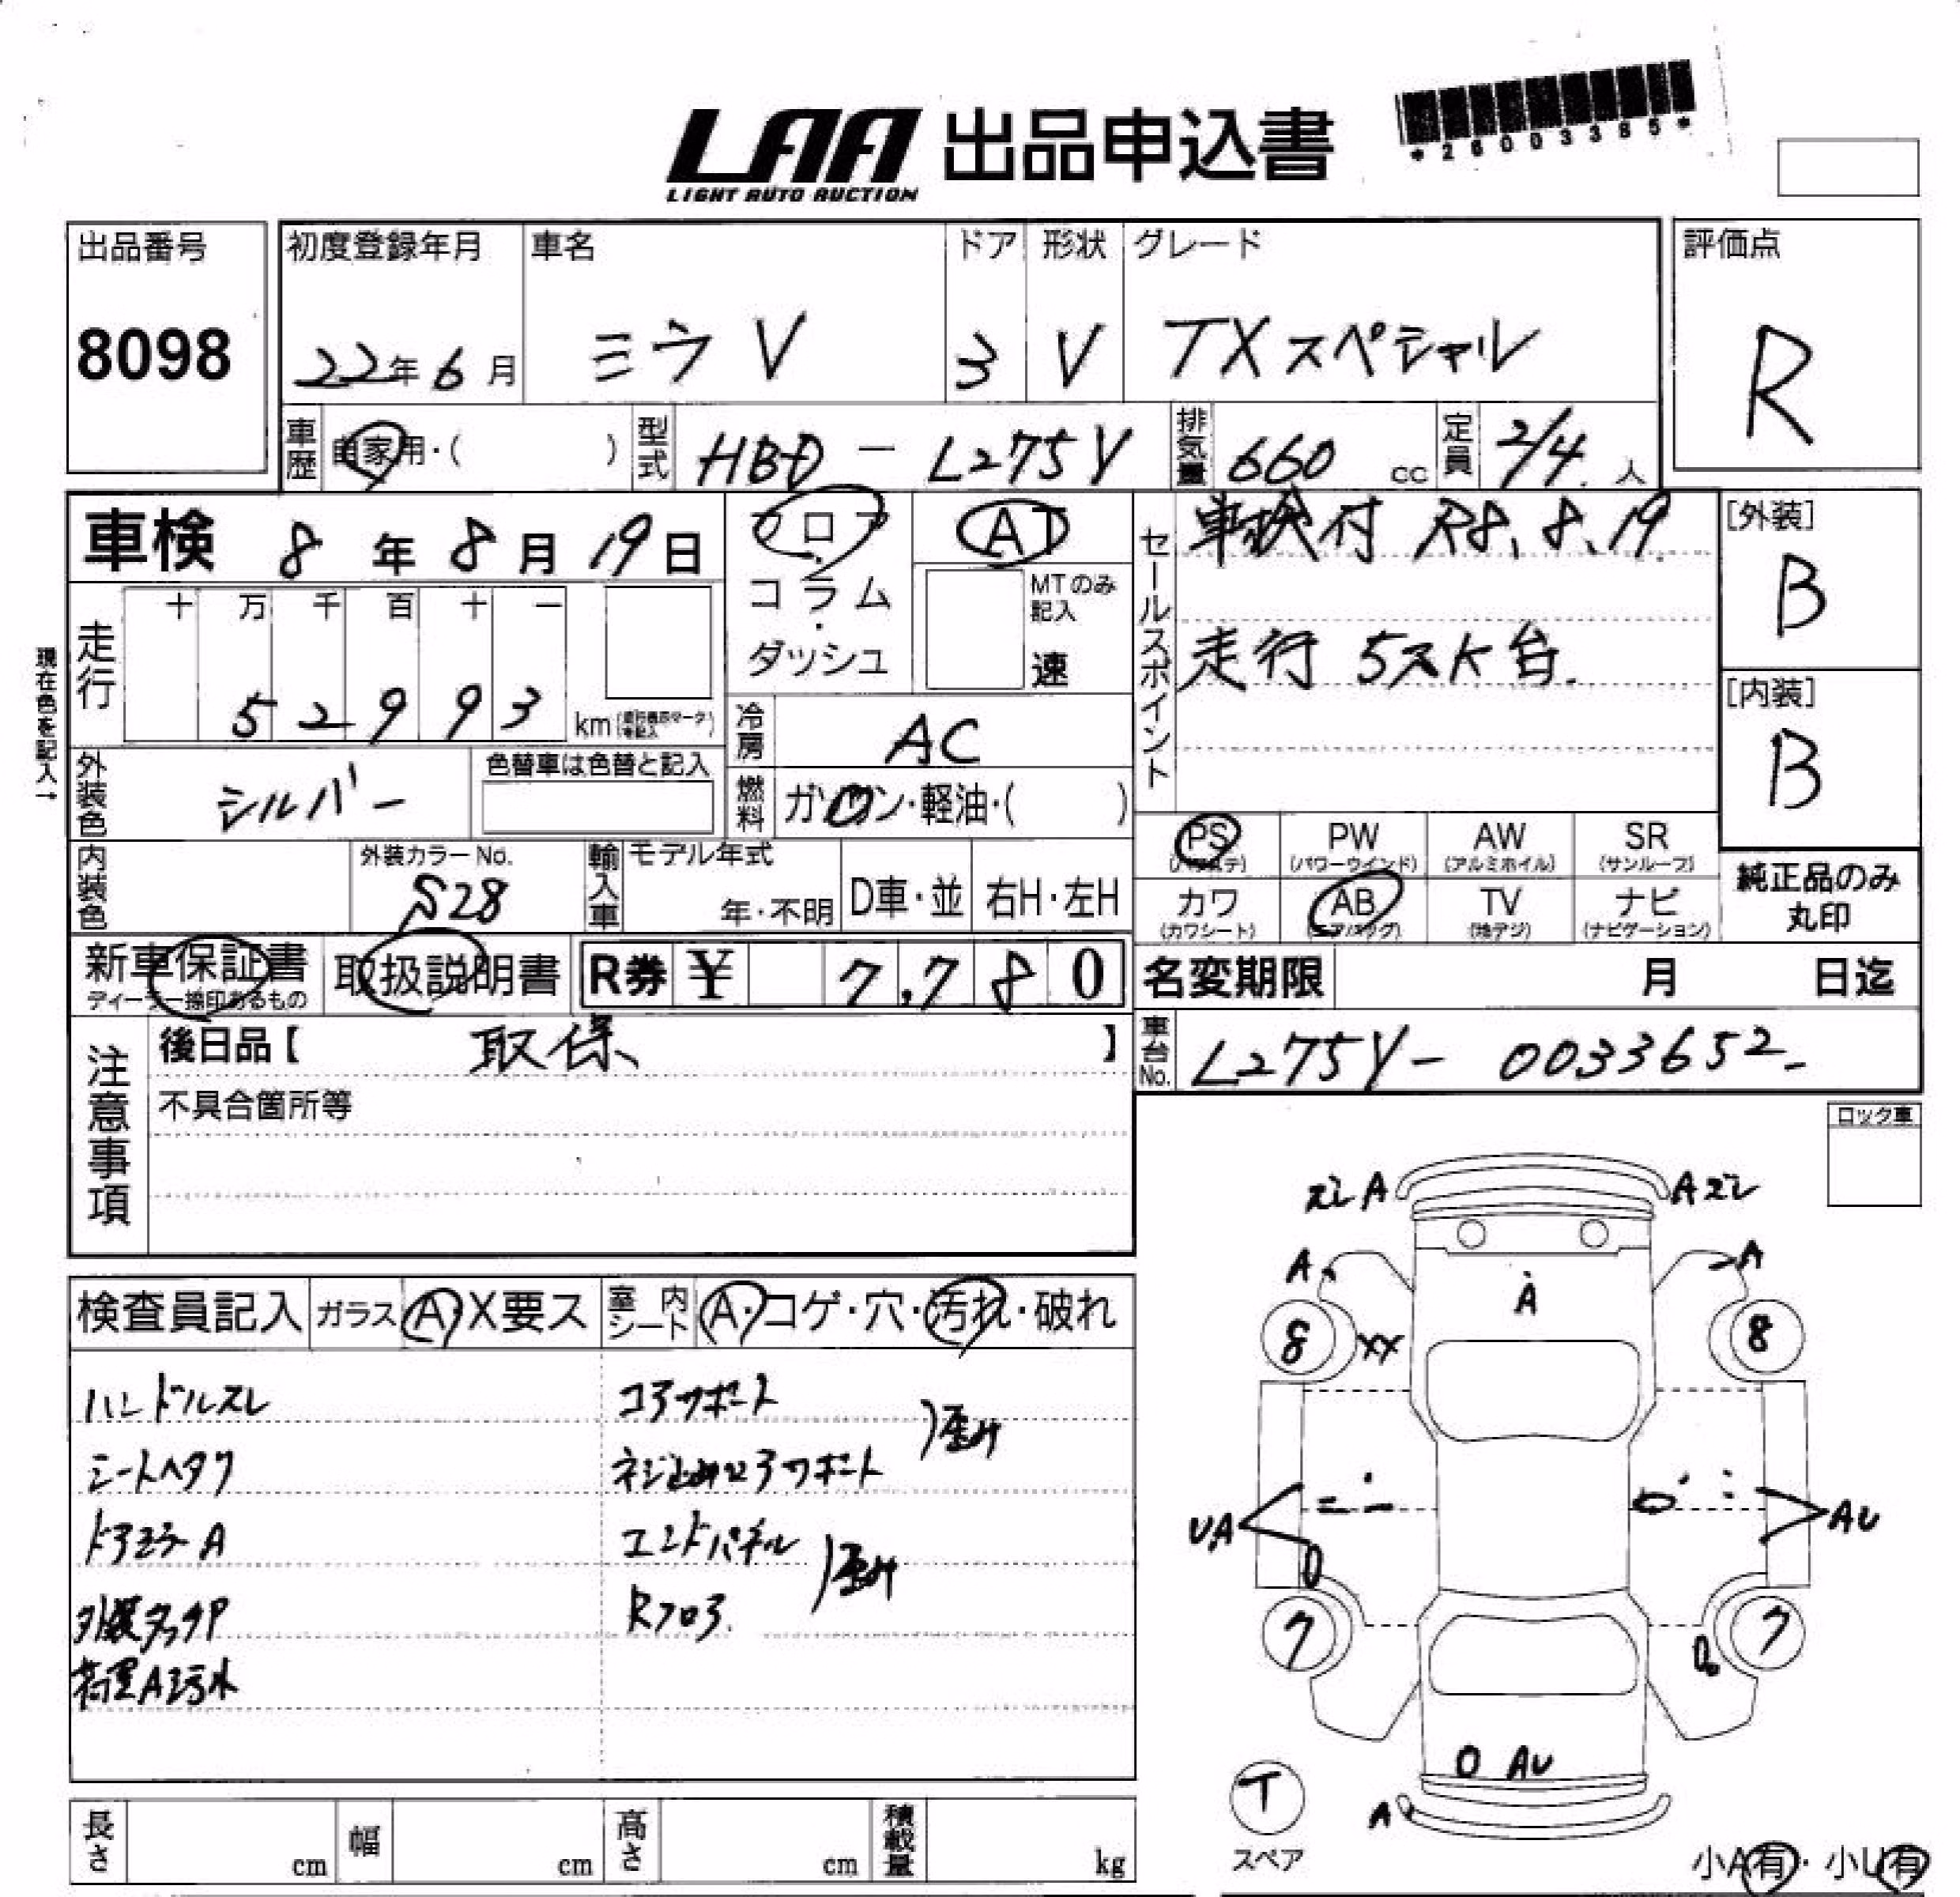 LAA 出品申込書
LIGHT AUTO AUCTION
*26003385*
出品番号
8098
初度登録年月
22年6月
車名
ミラV
ドア
3
形状
V
グレード
TXスペシャル
評価点
R
車歴
自家用・( )
型式
HBD - L275V
排気量
660 cc
定員
2/4 人
車検 8年8月19日
フロア・コラム・ダッシュ
AT
MTのみ記入
速
セールスポイント
車検付 R8.8.19.
走行 52K台.
[外装]
B
[内装]
B
現在色を記入→
走行
十 万 千 百 十 一
52993 km
冷房
AC
外装色
シルバー
色替車は色替と記入
燃料
ガソリン・軽油・( )
内装色
外装カラーNo.
S28
輸入車
モデル年式
年・不明
D車・並
右H・左H
PS
PW
(パワーウインド)
AW
(アルミホイル)
SR
(サンルーフ)
カワ
(カワシート)
AB
(エアバッグ)
TV
(地デジ)
ナビ
(ナビゲーション)
純正品のみ
丸印
新車保証書
取扱説明書
R券 ¥ 7,780
名変期限 月 日迄
注意事項
後日品【 取保、 】
不具合箇所等
車台No.
L275V-0033652-
ロック車
検査員記入
ガラス A・X要ス
室内シート A・コゲ・穴・汚れ・破れ
ハンドルスレ
シートヘタリ
ドアミラーA
外装タッチP
荷室A汚れ
コアサポート
ネジ止めコアサポート
歪み
エンドパネル
Rフロア
歪み
ズレ A
A ズレ
A
A
A
8
XX
8
UA
AU
7
7
O AU
A
T
スペア
小A有・小U有
長さ cm
幅 cm
高さ cm
積載量 kg